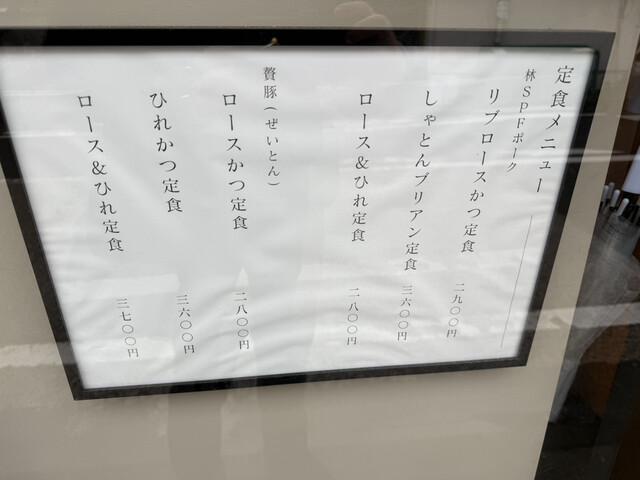 定食メニュー
林SPFポーク
リブロースかつ定食 二九〇〇円
しゃとんブリアン定食 三六〇〇円
ロース&ひれ定食 二八〇〇円
贅豚(ぜいとん)
ロースかつ定食 二八〇〇円
ひれかつ定食 三六〇〇円
ロース&ひれ定食 三七〇〇円